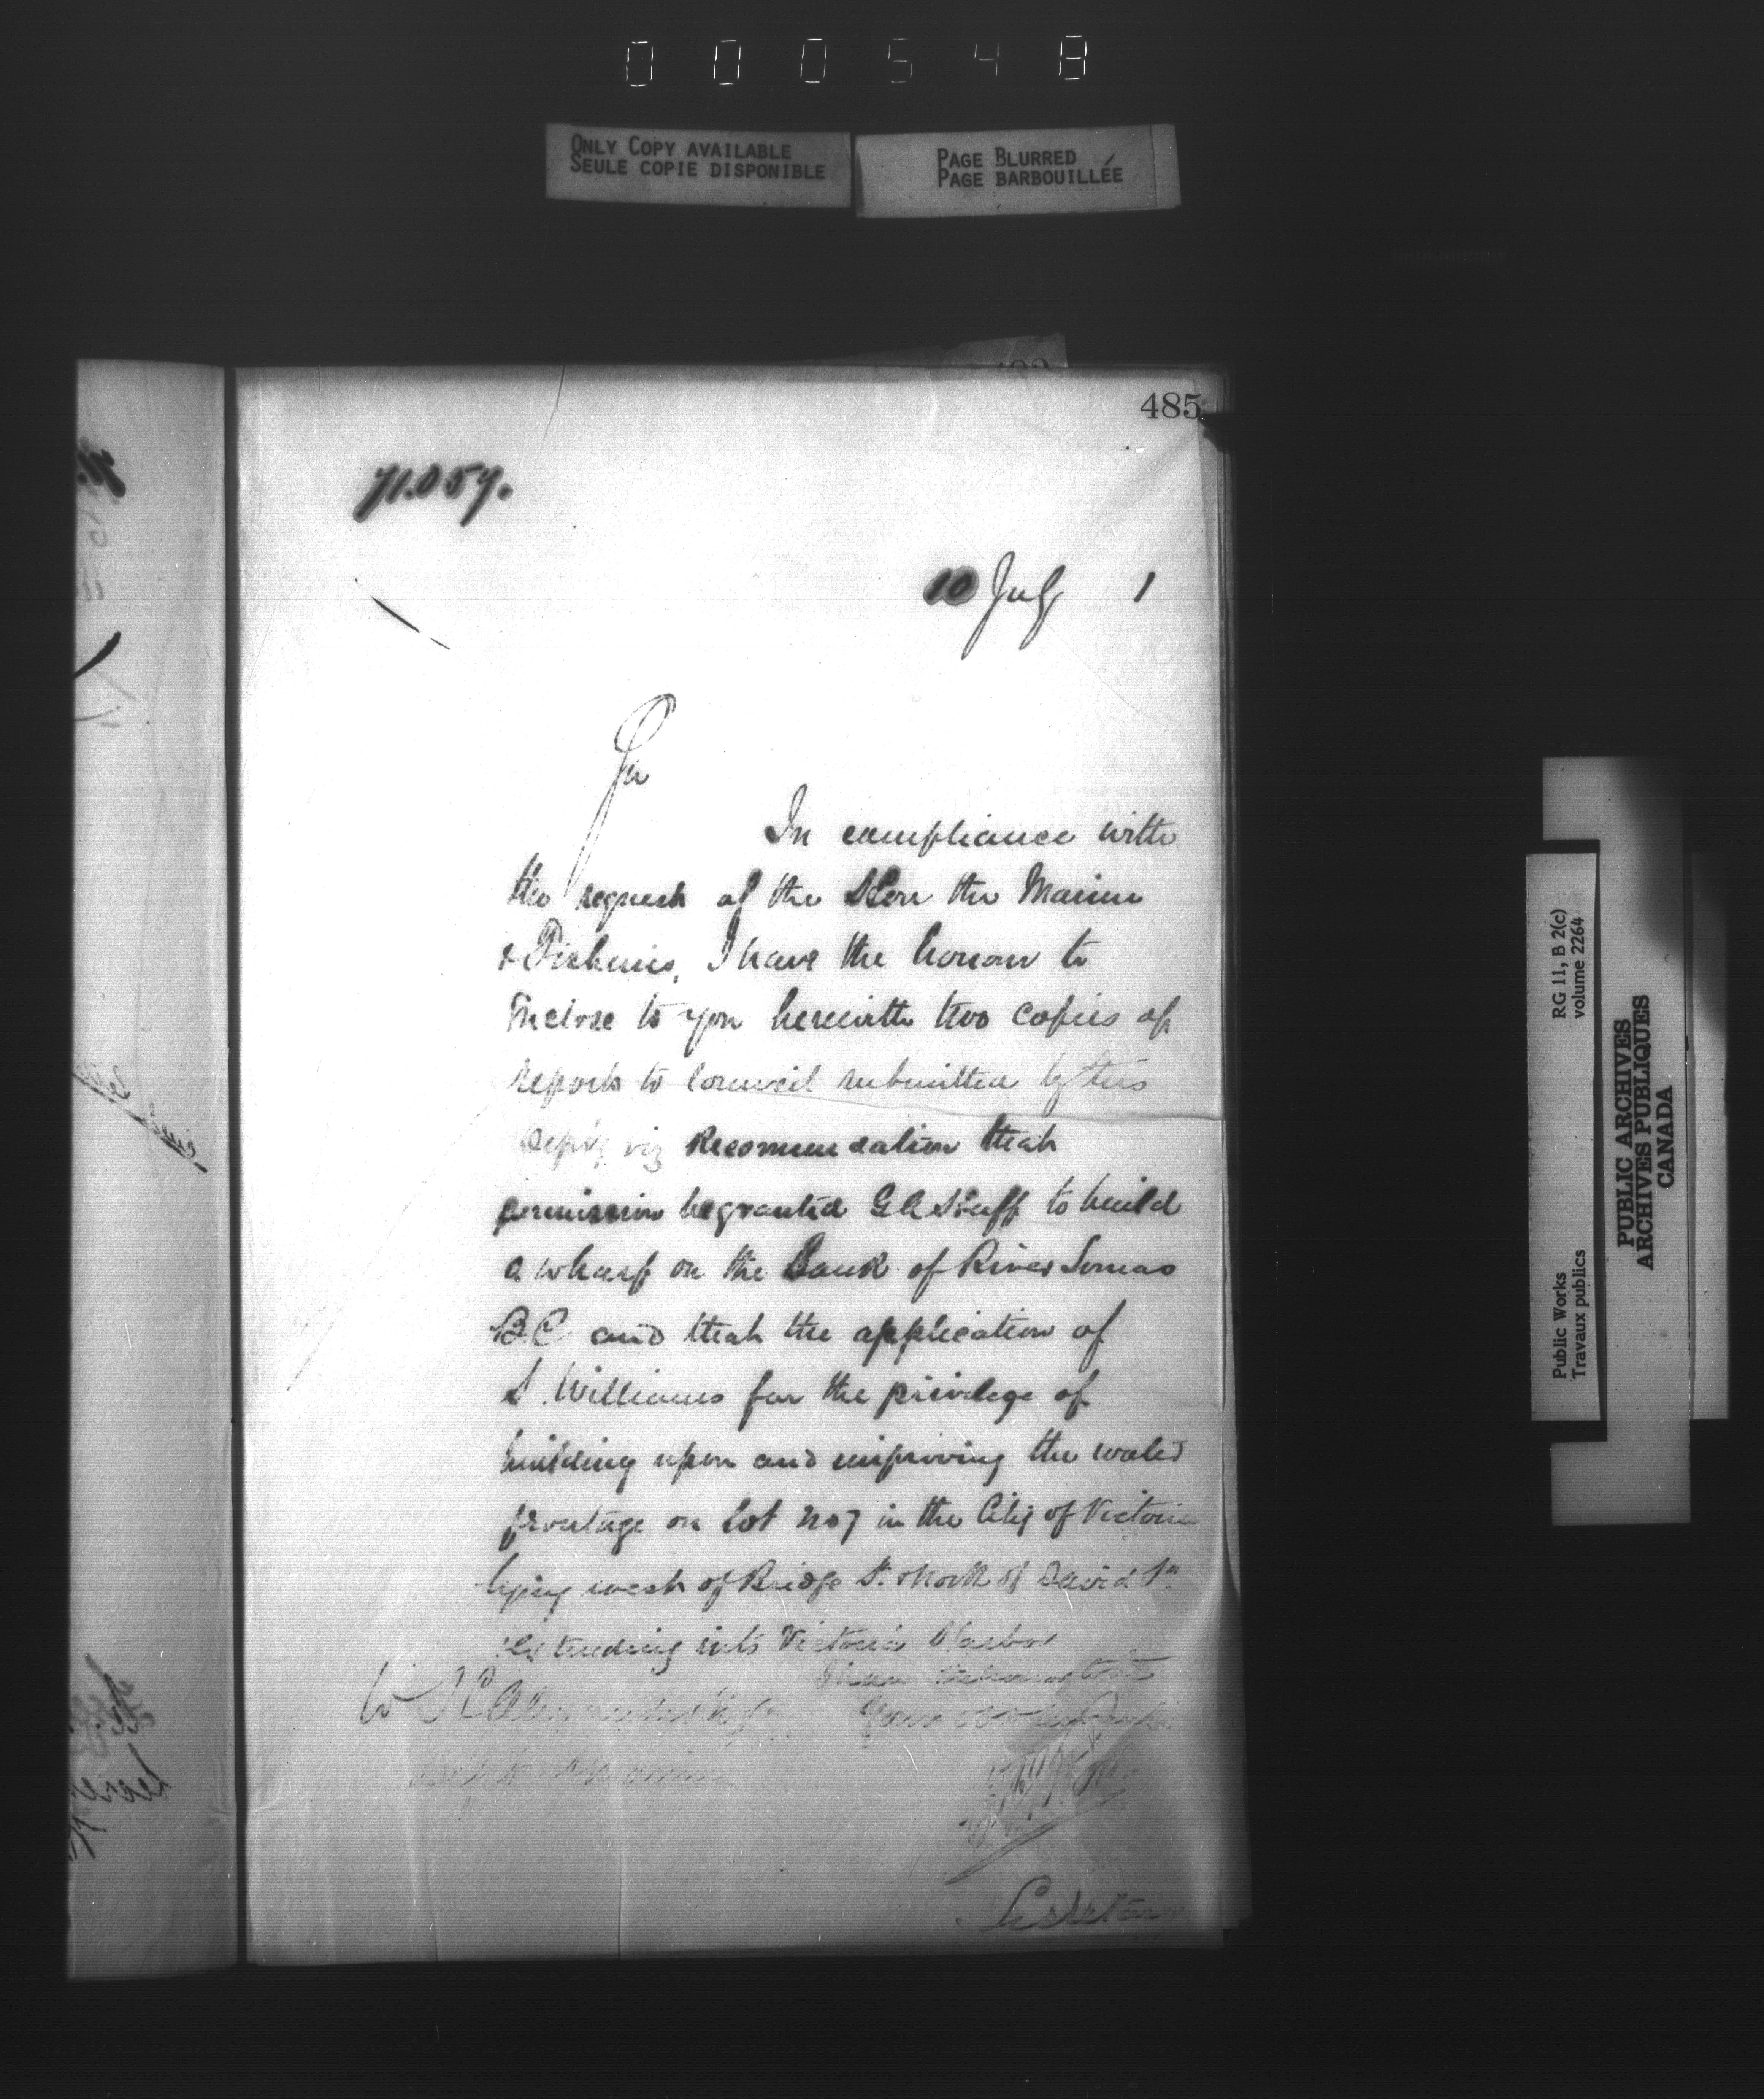 000548
ONLY COPY AVAILABLE
SEULE COPIE DISPONIBLE
PAGE BLURRED
PAGE BARBOUILLÉE
485
71.057.
10 July 1
Sir
In compliance with
the request of the Hon the Marine
& Fisheries, I have the honour to
Enclose to you herewith two copies of
reports to Council submitted by this
Dept viz Recommendation that
permission be granted to build
a wharf on the Bank of River Somas
B.C. and that the application of
S. Williams for the privilege of
building upon and improving the water
frontage on Lot No 7 in the City of Victoria
lying west of Bridge St. North of David St
extending into Victoria Harbor
I have the honor to be
Your
Secretary
RG 11, B 2(c)
volume 2264
Public Works
Travaux publics
PUBLIC ARCHIVES
ARCHIVES PUBLIQUES
CANADA